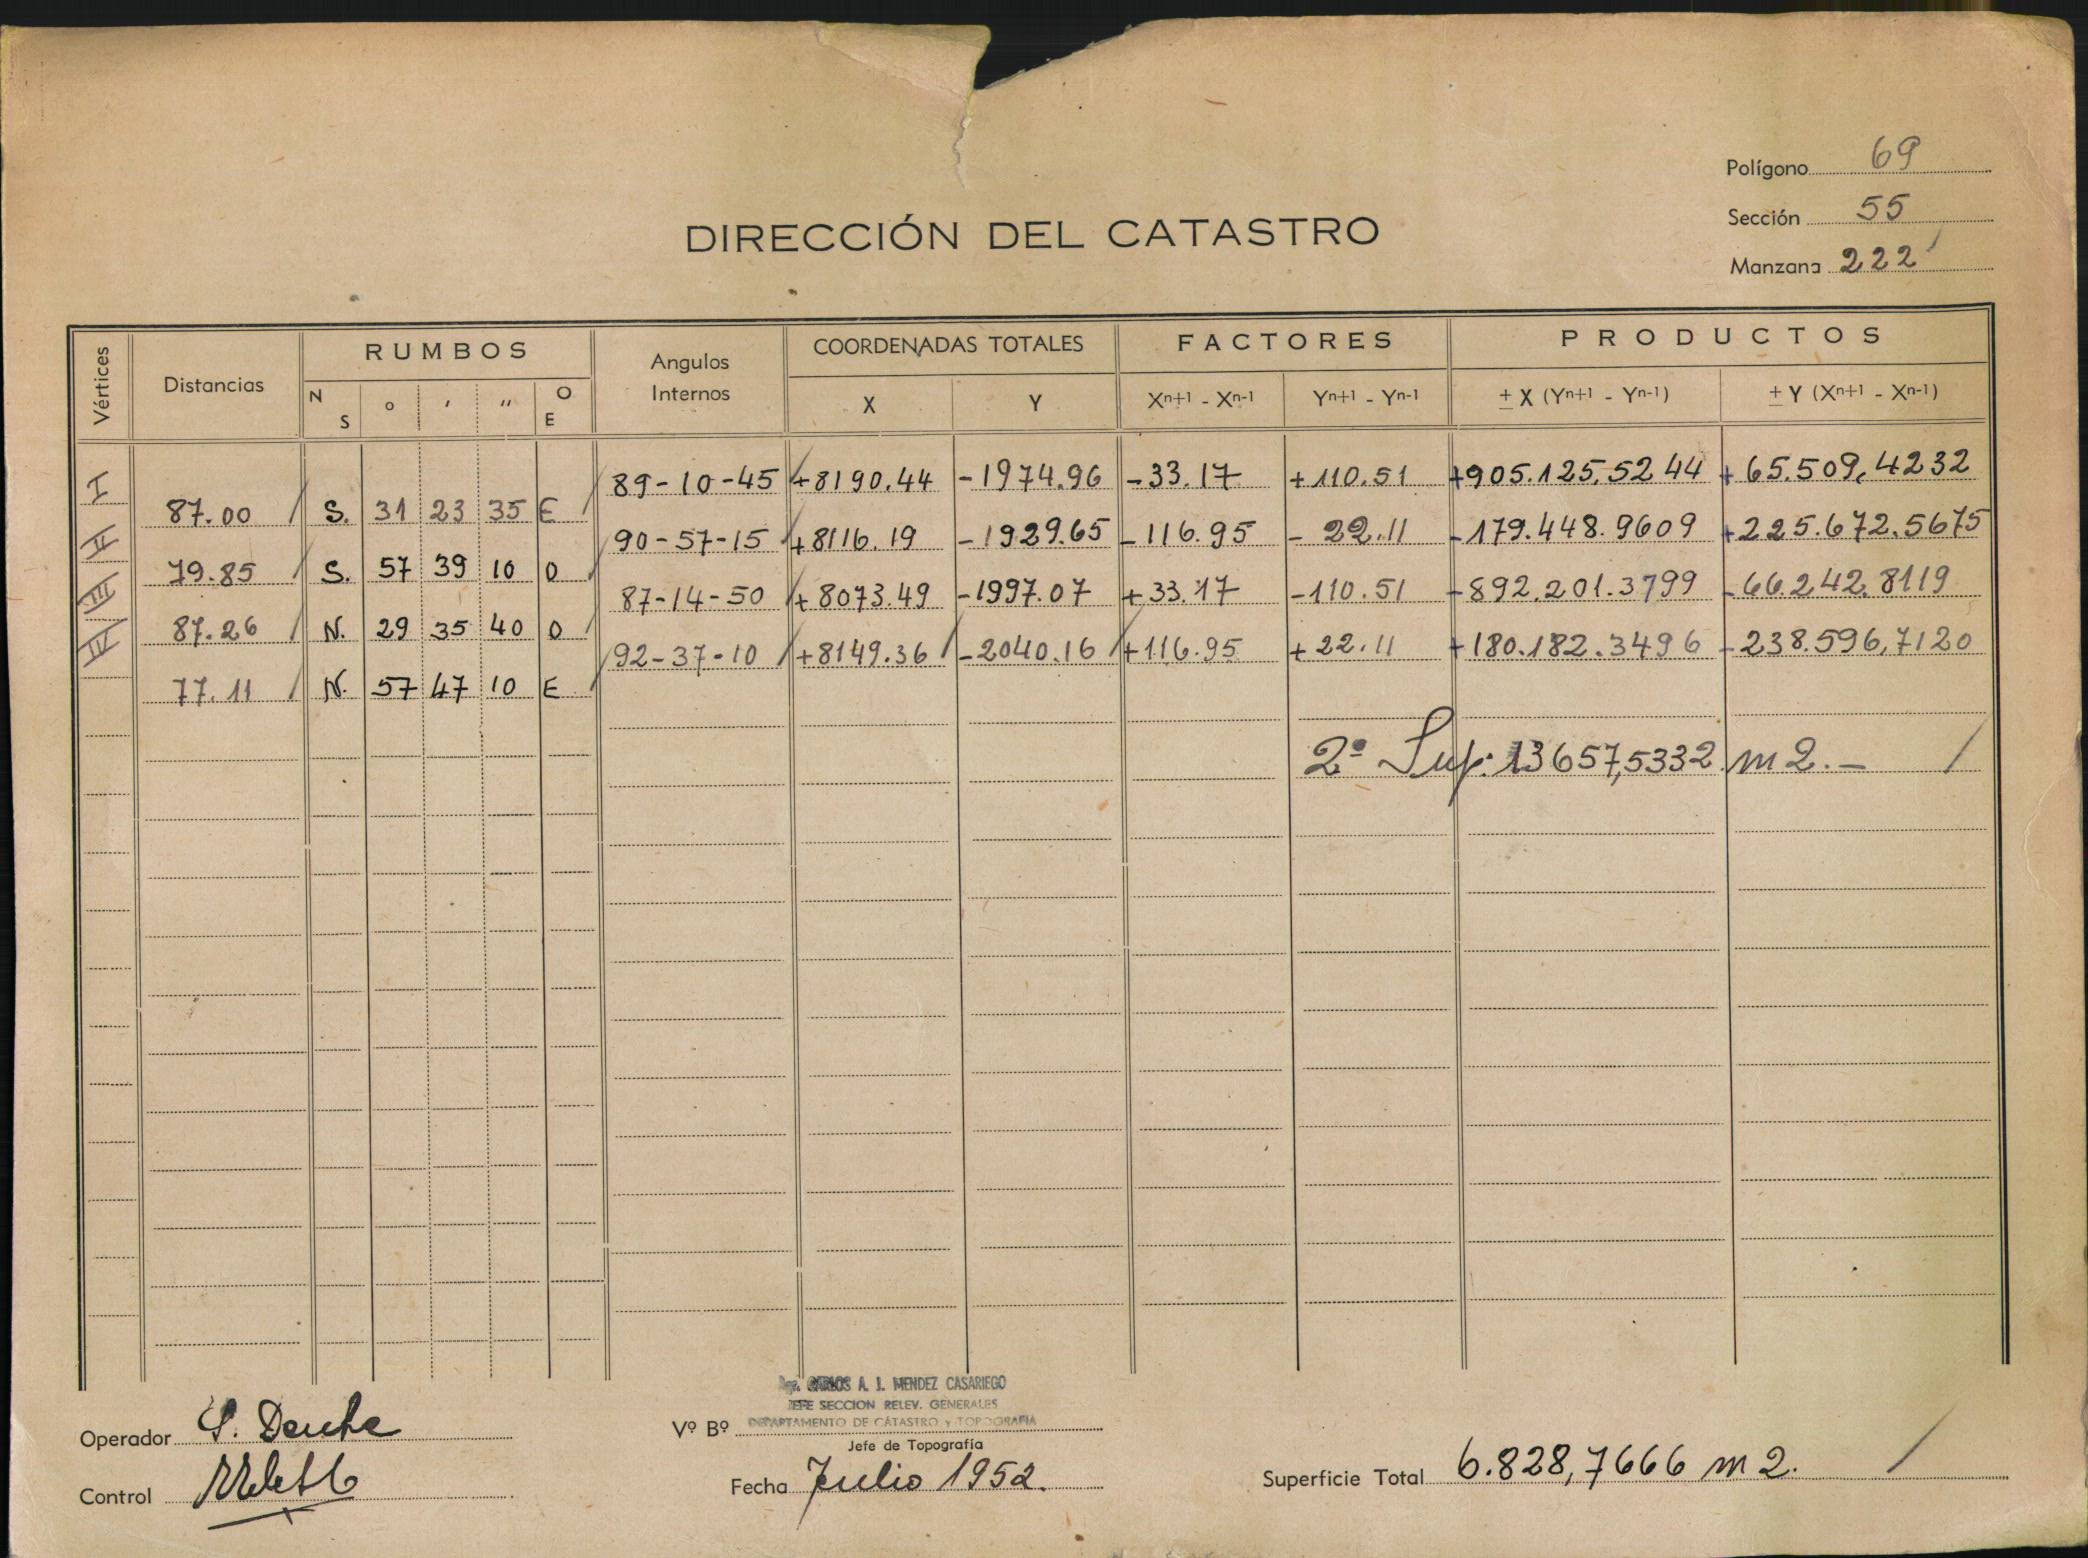 Polígono 69
Sección 55
Manzana 222
DIRECCIÓN DEL CATASTRO
Vértices Distancias RUMBOS Angulos Internos COORDENADAS TOTALES FACTORES PRODUCTOS
N S ° ' '' O E X Y Xn+1 - Xn-1 Yn+1 - Yn-1 ± X (Yn+1 - Yn-1) ± Y (Xn+1 - Xn-1)
I 89-10-45 +8190.44 -1974.96 -33.17 +110.51 +905.125.5244 +65.509,4232
87.00 S. 31 23 35 E
II 90-57-15 +8116.19 -1929.65 -116.95 -22.11 -179.448.9609 +225.672.5675
79.85 S. 57 39 10 O
III 87-14-50 +8073.49 -1997.07 +33.17 -110.51 -892.201.3799 -66.242.8119
87.26 N. 29 35 40 O
IV 92-37-10 +8149.36 -2040.16 +116.95 +22.11 +180.182.3496 -238.596,7120
77.11 N. 57 47 10 E
2ª Sup: 13657,5332 m2.-
CARLOS A. J. MENDEZ CASARIEGO
JEFE SECCION RELEV. GENERALES
DEPARTAMENTO DE CATASTRO y TOPOGRAFIA
Operador Vº Bº
Jefe de Topografía
Control Fecha Julio 1952. Superficie Total 6.828,7666 m2.